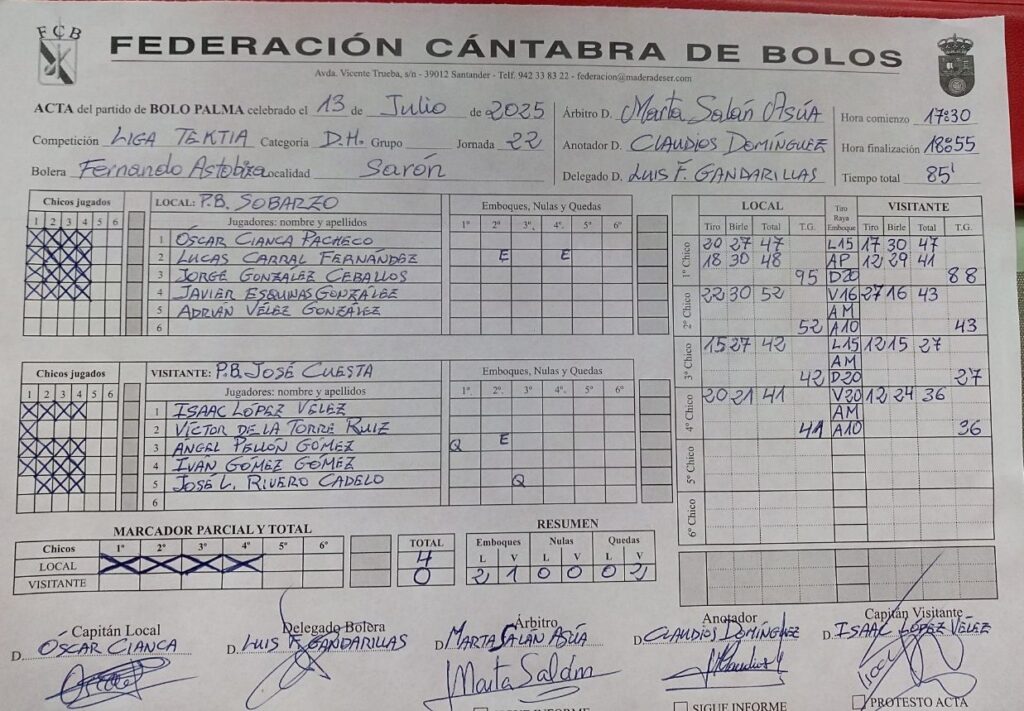 FCB
FEDERACIÓN CÁNTABRA DE BOLOS
Avda. Vicente Trueba, s/n - 39012 Santander - Telf. 942 33 83 22 - federacion@maderadeser.com
ACTA del partido de BOLO PALMA celebrado el 13 de Julio de 2025
Competición LIGA TEKTIA Categoría D.H. Grupo Jornada 22
Bolera Fernando Astobiza Localidad Sarón
Árbitro D. Marta Salán Asúa
Anotador D. CLAUDIOS DOMÍNGUEZ
Delegado D. LUIS F. GANDARILLAS
Hora comienzo 17:30
Hora finalización 18:55
Tiempo total 85'
Chicos jugados
1 2 3 4 5 6
LOCAL: P.B. SOBARZO
Jugadores: nombre y apellidos
Emboques, Nulas y Quedas
1º 2º 3º 4º 5º 6º
1 ÓSCAR CIANCA PACHECO
2 LUCAS CARRAL FERNÁNDEZ E E
3 JORGE GONZÁLEZ CEBALLOS
4 JAVIER ESQUINAS GONZÁLEZ
5 ADRIÁN VÉLEZ GONZÁLEZ
6
Chicos jugados
1 2 3 4 5 6
VISITANTE: P.B. JOSÉ CUESTA
Jugadores: nombre y apellidos
Emboques, Nulas y Quedas
1º 2º 3º 4º 5º 6º
1 ISAAC LÓPEZ VÉLEZ
2 VÍCTOR DE LA TORRE RUIZ
3 ANGEL PELLÓN GÓMEZ Q E
4 IVÁN GÓMEZ GÓMEZ
5 JOSÉ L. RIVERO CADELO Q
6
LOCAL Tiro Raya Emboque VISITANTE
Tiro Birle Total T.G. Tiro Birle Total T.G.
1º Chico
20 27 47 L15 17 30 47
18 30 48 AP 12 29 41
95 D20 88
2º Chico
22 30 52 V16 27 16 43
AM
52 A10 43
3º Chico
15 27 42 L15 12 15 27
AM
42 D20 27
4º Chico
20 21 41 V20 12 24 36
AM
41 A10 36
5º Chico
6º Chico
MARCADOR PARCIAL Y TOTAL
Chicos 1º 2º 3º 4º 5º 6º TOTAL
LOCAL X X X X 4
VISITANTE 0
RESUMEN
Emboques Nulas Quedas
L V L V L V
2 1 0 0 0 2
Capitán Local
D. ÓSCAR CIANCA
Delegado Bolera
D. LUIS F. GANDARILLAS
Árbitro
D. MARTA SALÁN ASÚA
Marta Salán
Anotador
D. CLAUDIOS DOMÍNGUEZ
Capitán Visitante
D. ISAAC LÓPEZ VÉLEZ
SIGUE INFORME
SIGUE INFORME
PROTESTO ACTA